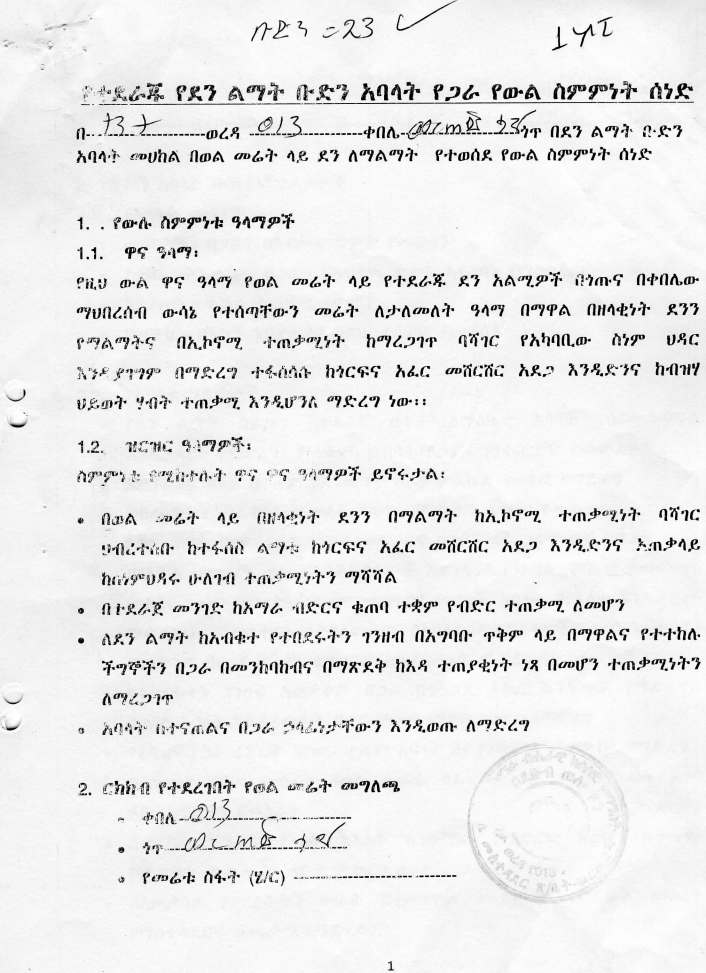 =23
የተደራጁ የደን ልማት ቡድን አባላት የጋራ የውል ስምምነት ሰነድ
በ- ወረዳ 013 ቀበሌ- ጎጥ በደን ልማት ቡድን
አባላት መሀከል በወል መሬት ላይ ደን ለማልማት የተወሰደ የውል ስምምነት ሰነድ
1. . የውሉ ስምምነቱ ዓላማዎች
1.1. ዋና ዓላማ፡
የዚህ ውል ዋና ዓላማ የወል መሬት ላይ የተደራጁ ደን አልሚዎች በጎጡና በቀበሌው
ማህበረሰብ ውሳኔ የተሰጣቸውን መሬት ለታለመለት ዓላማ በማዋል በዘላቂነት ደንን
የማልማትና በኢኮኖሚ ተጠቃሚነት ከማረጋገጥ ባሻገር የአካባቢው ስነም ህዳር
እንዲያገግም በማድረግ ተፋሰሰሱ ከጎርፍና አፈር መሸርሸር አደጋ እንዲድንና ከብዝሃ
ህይወት ሃብት ተጠቃሚ እንዲሆንለ ማድረግ ነው፡፡
1.2. ዝርዝር ዓላማዎች፡
ስምምነቱ የሚከተሉት ዋና ዋና ዓላማዎች ይኖሩታል፡
• በወል መሬት ላይ በዘላቂነት ደንን በማልማት ከኢኮኖሚ ተጠቃሚነት ባሻገር
ህብረተሰቡ ከተፋሰስ ልማቱ ከጎርፍና አፈር መሸርሸር አደጋ እንዲድንና አጠቃላይ
ከስነምህዳሩ ሁለገብ ተጠቃሚነትን ማሻሻል
• በተደራጀ መንገድ ከአማራ ብድርና ቁጠባ ተቋም የብድር ተጠቃሚ ለመሆን
• ለደን ልማት ከአብቁተ የተበደሩትን ገንዘብ በአግባቡ ጥቅም ላይ በማዋልና የተተከሉ
ችግኞችን በጋራ በመንከባከብና በማጽደቅ ከእዳ ተጠያቂነት ነጻ በመሆን ተጠቃሚነትን
ለማረጋገጥ
• አባላት በተናጠልና በጋራ ኃላፊነታቸውን እንዲወጡ ለማድረግ
2. ርክክብ የተደረገበት የወል መሬት መግለጫ
- ቀበሌ 013
• ጎጥ
• የመሬቱ ስፋት (ሄ/ር)
1